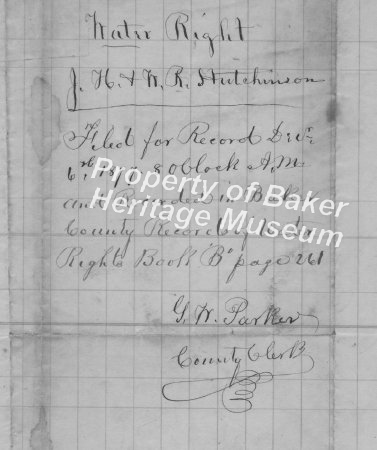 Water Right
J. H. & W. R. Hutchinson
Filed for Record Decr.
6th 8 Oclock A.M.
and Recorded in Baker
County Record of Water
Rights Book "B" page 261
G. W. Parker
County Clerk
Property of Baker
Heritage Museum